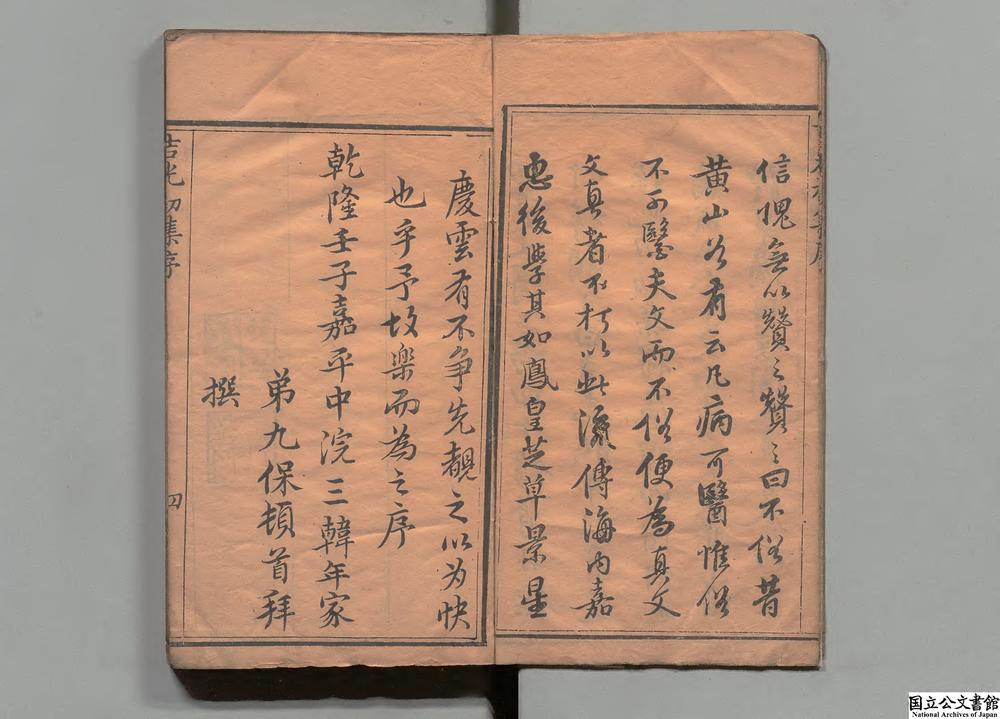 信愧無以贊之贊之曰不俗昔
黄山谷有云凡病可醫惟俗
不可醫夫文而不俗便為真文
文真者不朽以此流傳海内嘉
惠後學其如鳳皇芝草景星
慶雲有不争先覩之以为快
也乎予故樂而為之序
乾隆壬子嘉平中浣三韓年家
弟九保頓首拜
撰
吉光初集序
四
国立公文書館
National Archives of Japan